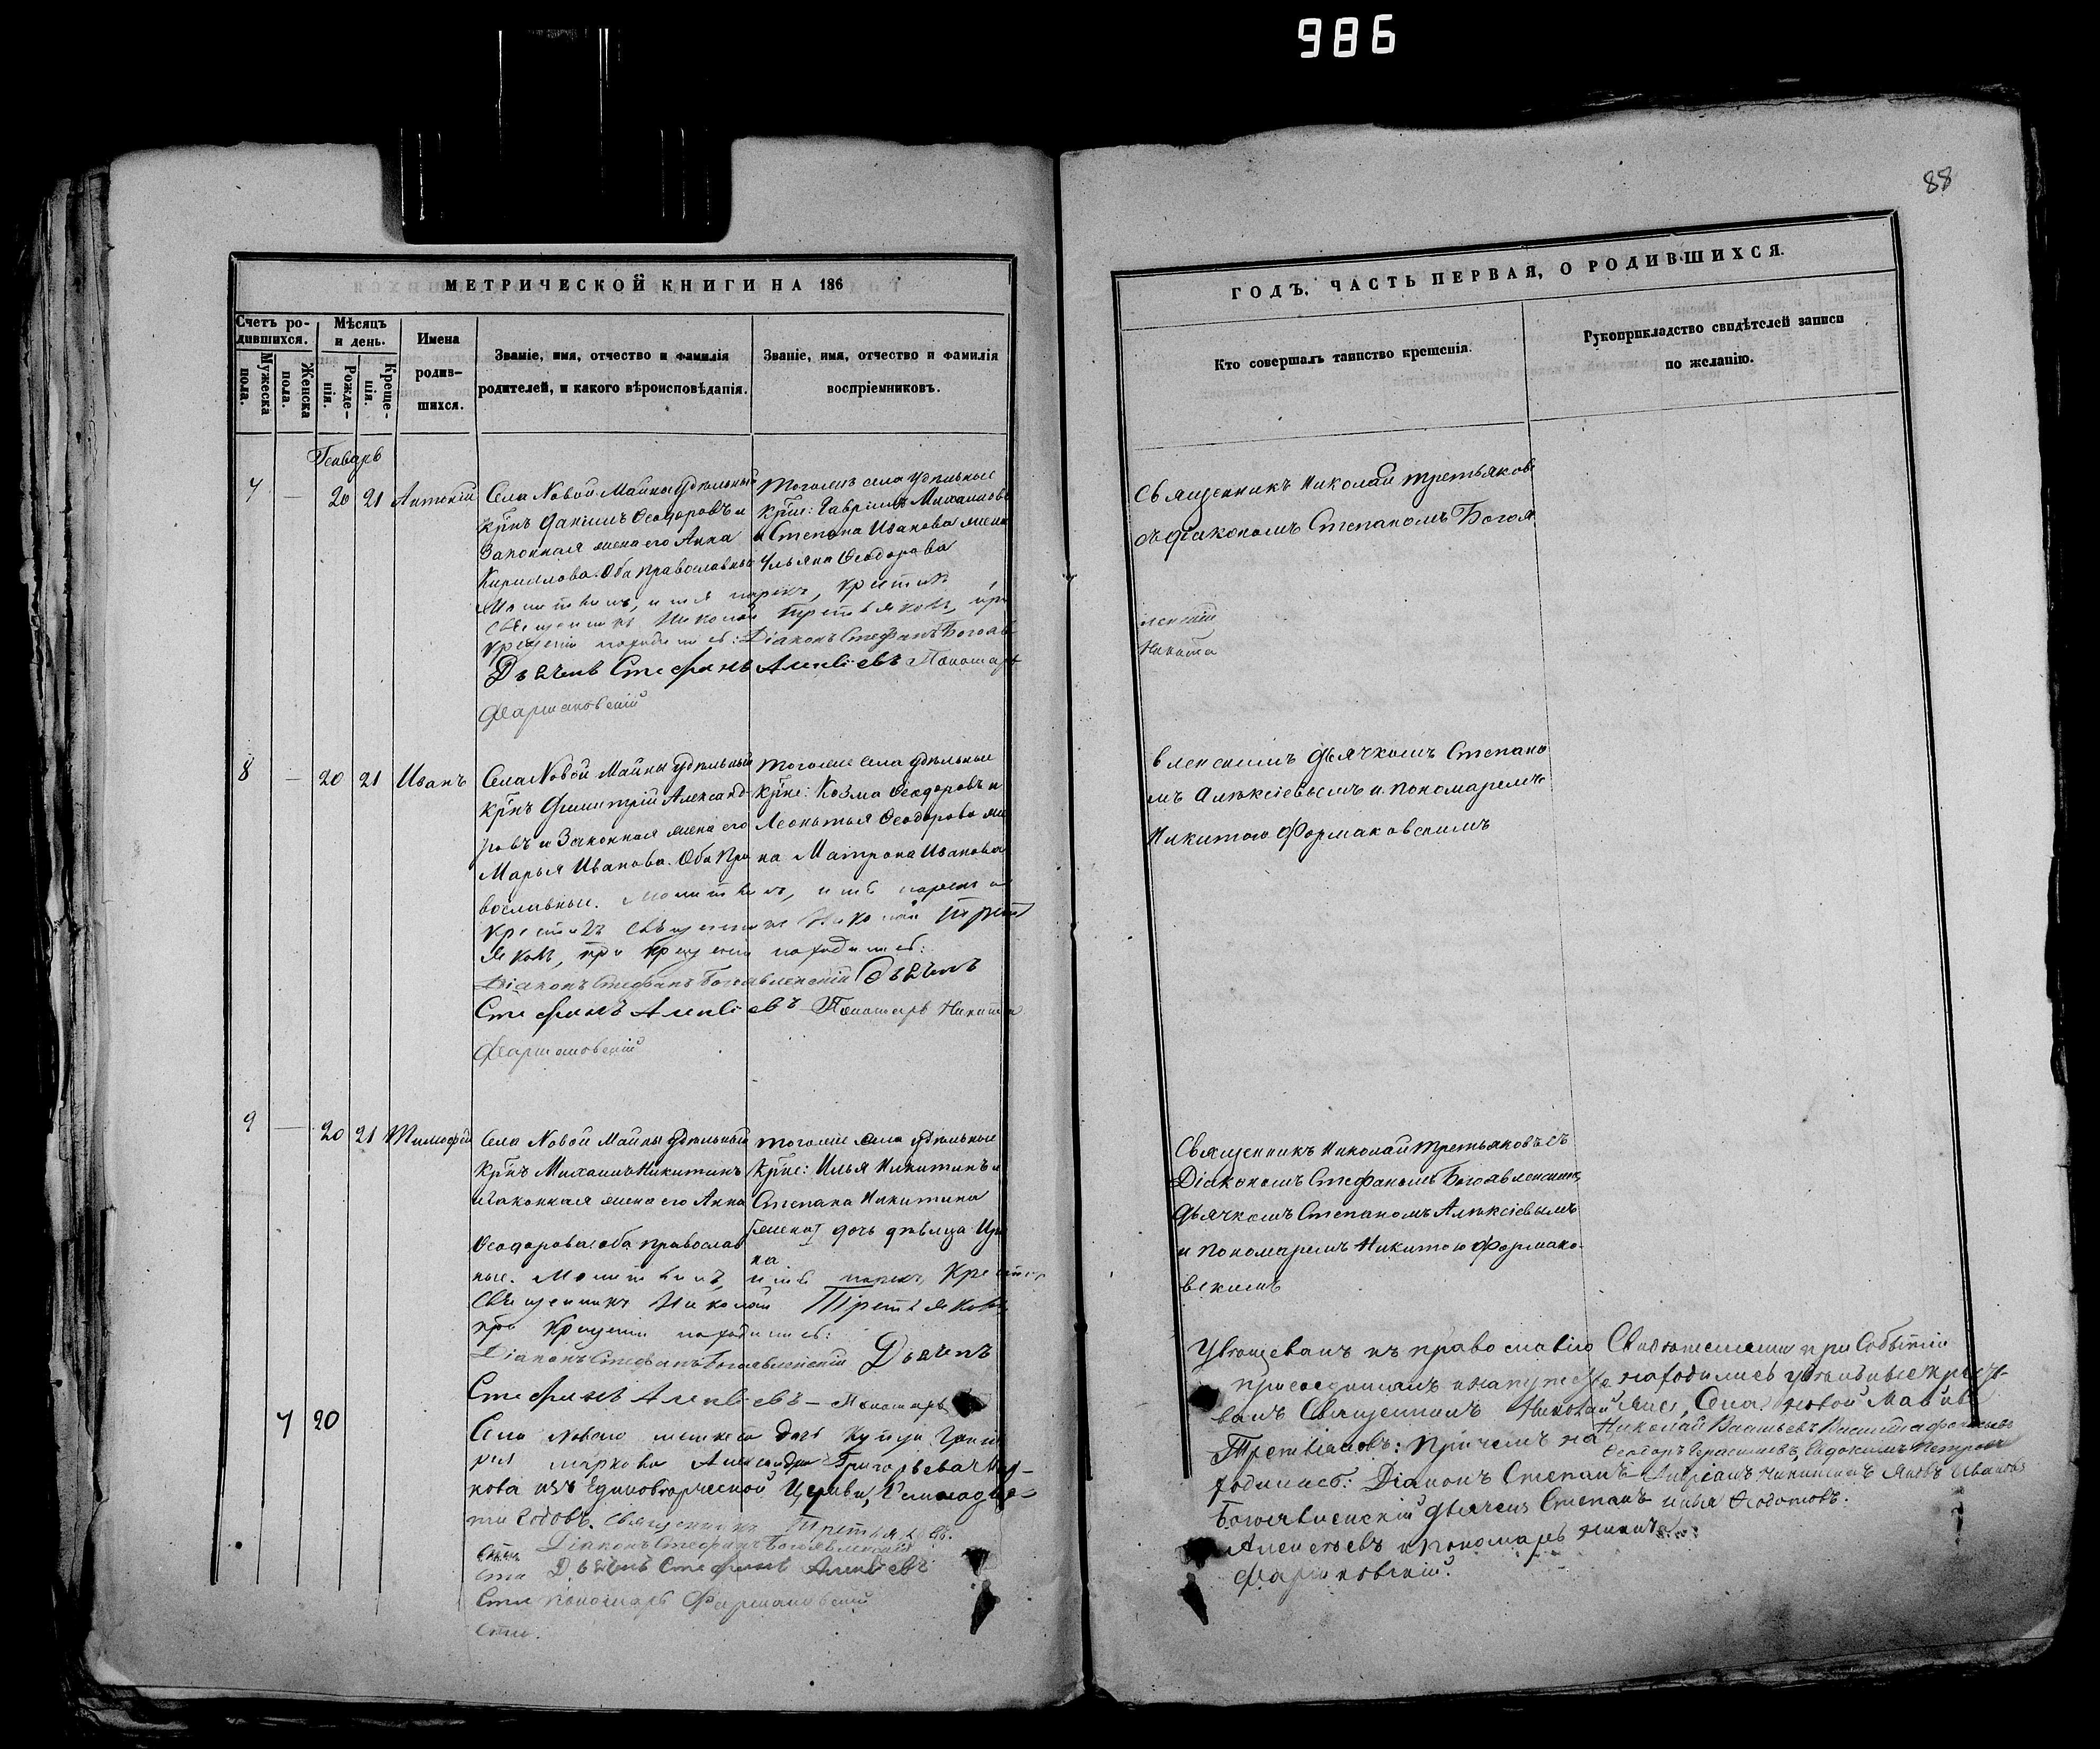 986
88
МЕТРИЧЕСКОЙ КНИГИ НА 186
Счетъ ро-
дившихся.
Мужеска пола.
Женска пола.
Мѣсяцъ и день.
Рожде-
нія.
Креще-
нія.
Имена
родив-
шихся.
Званіе, имя, отчество и фамилія
родителей, и какого вѣроисповѣданія.
Званіе, имя, отчество и фамилія
воспріемниковъ.
Генварь
7 — 20 21 Антоній
Села Новой Майны удѣльный
крнъ Даніилъ Ѳеодоровъ и
Законная жена его Анна
Кириллова. Оба православные
тогоже села удѣльные
крне: Гавріилъ Михаиловъ
и Степана Иванова жена
Ульяна Ѳеодорова
Молитвилъ, имя нарекъ, крестилъ
Священникъ Николай Третьяковъ, при
крещеніи находились: Діаконъ Стефанъ Богояв
Дьячекъ Стефанъ Алексіевъ Пономарь
Фармаковскій
8 — 20 21 Иванъ
Села Новой Майны удѣльный
крнъ Димитрій Александ-
ровъ и Законная жена его
Марья Иванова. Оба пра
вославные.
тогоже села удѣльные
крне: Козма Ѳеодоровъ и
Леонтья Ѳеодорова же
на Матрона Иванова
Молитвилъ, имя нарекъ и
крестилъ священникъ Николай Треть
яковъ, при крещеніи находились:
Діаконъ Стефанъ Богоявленскій Дьячекъ
Стефанъ Алексіевъ Пономарь Никита
Фармаковскій
9 — 20 21 Тимофей
Села Новой Майны удѣльный
крнъ Михаилъ Никитинъ
и законная жена его Анна
Ѳеодорова: оба православ
ные.
тогоже села удѣльные
крне: Илья Никитинъ и
Степана Никитина
дочь дѣвица Ири
на
Молитвилъ, имя нарекъ, Крестилъ
Священникъ Николай Третьяковъ
при Крещеніи находились:
Діаконъ Стефанъ Богоявленскій Дьячекъ
Стефанъ Алексіевъ — Пономарь
7 20
Села Новой дочь купца
Маркова Александра Григорьева Мар-
кова изъ Единовѣрческой Церкви,
годовъ. Священникъ Третьяковъ.
Діаконъ Стефанъ Богоявленскій
Дьячекъ Стефанъ Алексіевъ
Пономарь Фармаковскій
ГОДЪ. ЧАСТЬ ПЕРВАЯ, О РОДИВШИХСЯ.
Кто совершалъ таинство крещенія.
Рукоприкладство свидѣтелей записи
по желанію.
Священникъ Николай Третьяковъ
съ діакономъ Степаномъ Богоя
ленскій
Никита
вленскимъ дьячкомъ Степано
мъ Алексіевымъ и пономаремъ
Никитою Формаковскимъ
Священникъ Николай Третьяковъ съ
Діакономъ Стефаномъ Богоявленскимъ
дьячкомъ Степаномъ Алексіевымъ
и пономаремъ Никитою Формако-
вскимъ
Увѣщеванъ къ православію
Священникомъ Николай
Третьяковъ: Причемъ на
ходились: Діаконъ Степанъ
Богоявленскій дьячекъ Степанъ
Алексѣевъ и пономарь Никита
Фармаковскій.
Свидѣтелями при Событіи
находились удѣльные крестья-
не Села Новой Майны
Николай Васильевъ
Ѳеодоръ Герасимовъ, Евдокимъ Петровъ
Никитинъ Яковъ Ивановъ
Илья Ѳедотовъ.